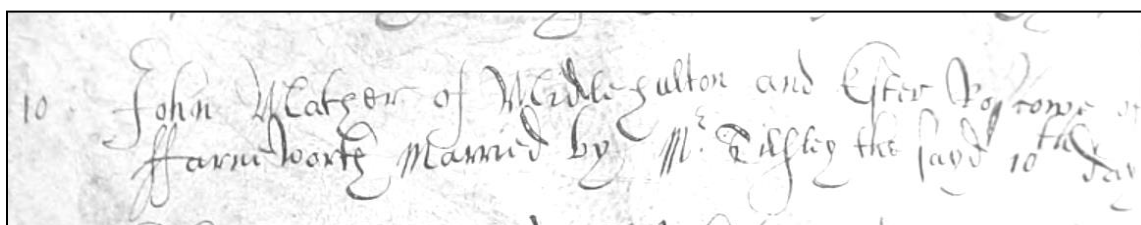 10 John Mather of Midlehulton and Ester Roscowe of
ffarnworth Married by Mr. Tildsley the sayd 10th day